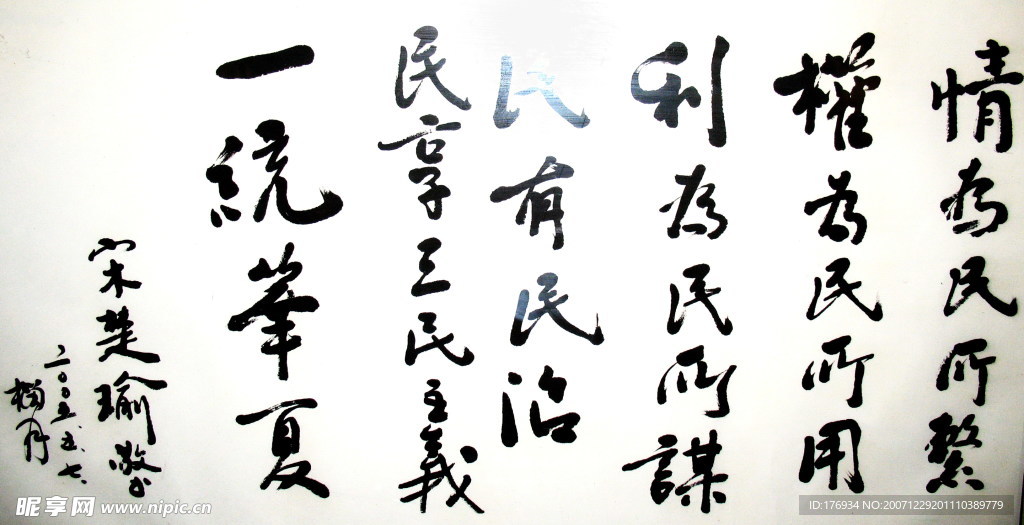 情為民所繫
權為民所用
利為民所謀
民有民治
民享三民主義
一統華夏
宋楚瑜敬書
二〇〇五.五.七.
昵享网 www.nipic.cn
ID:176934 NO:20071229201110389779